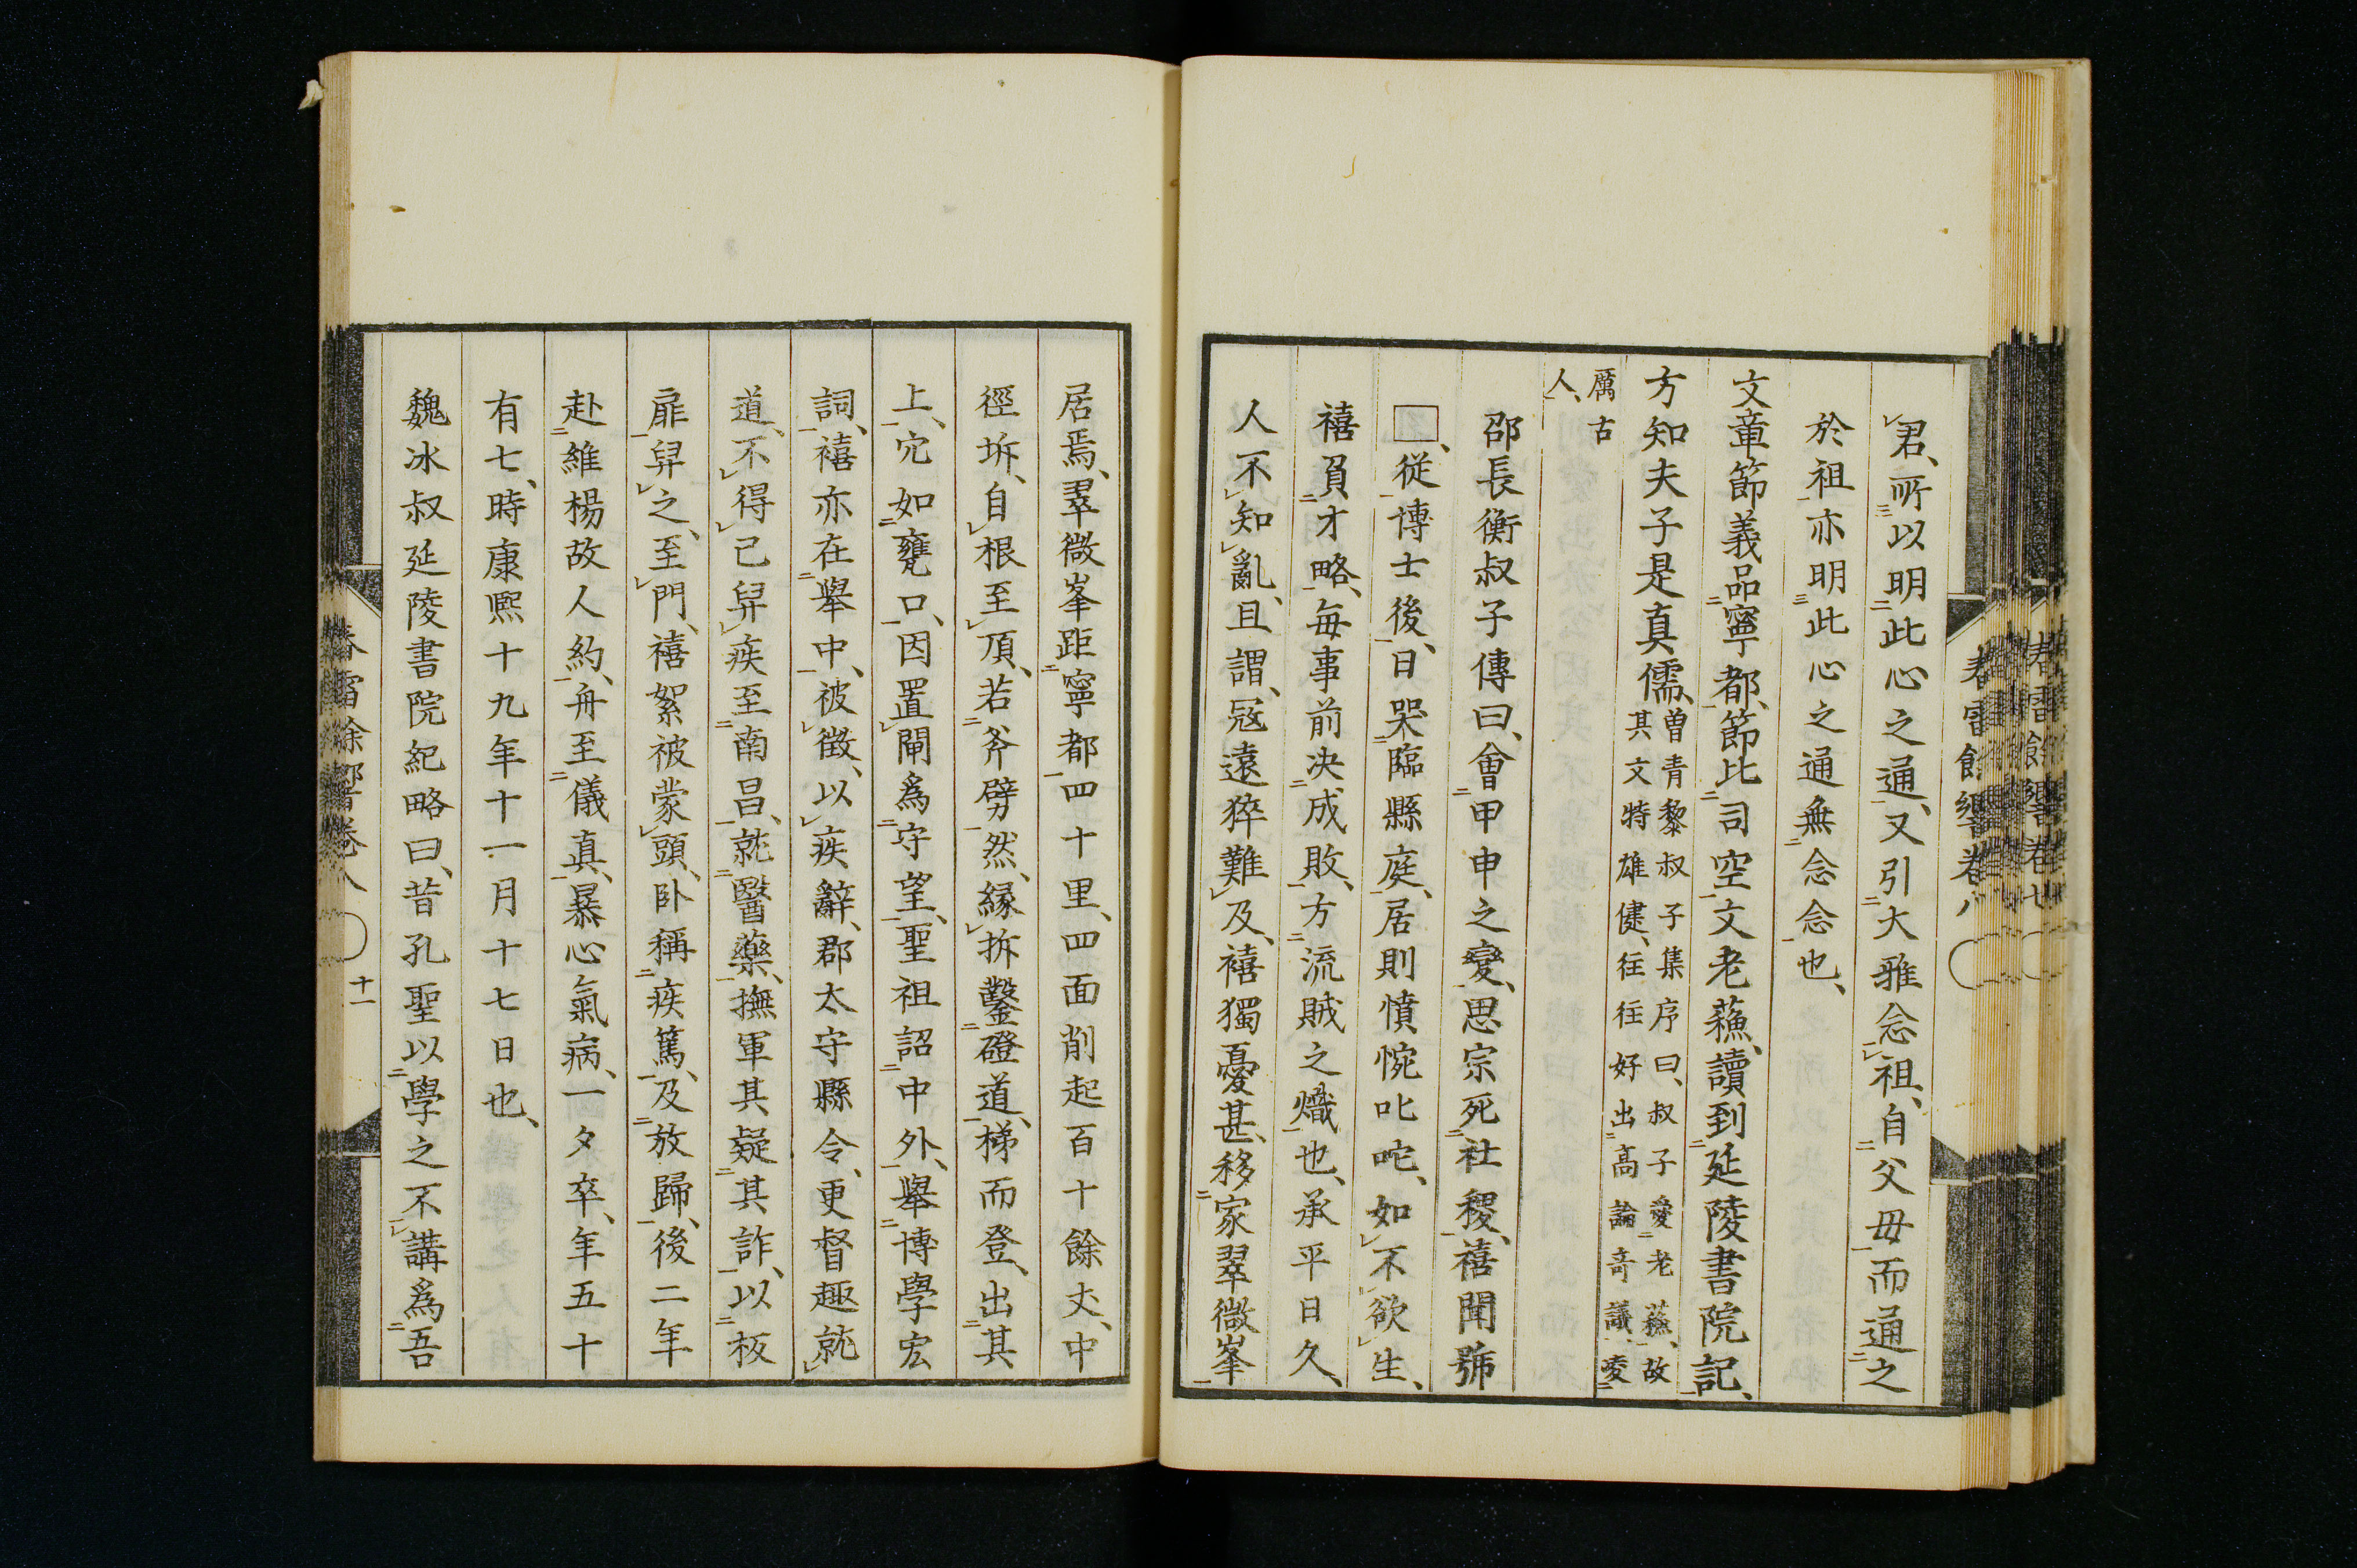 君、所以明此心之通、又引大雅念祖、自父母而通之
於祖亦明此心之通無念念也、
文章節義品寧都、節比司空文老蘓、讀到延陵書院記、
方知夫子是真儒、
曽青藜叔子集序曰、叔子愛老蘓、故
其文特雄健、往往好出高論奇議、凌
厲古
人、
邵長衡叔子傳曰、會甲申之變、思宗死社稷、禧聞號
□、従博士後、日哭臨縣庭、居則憤惋叱咤、如不欲生、
禧負才略、毎事前决成敗、方流賊之熾也、承平日久、
人不知亂、且謂、冦遠猝難及、禧獨憂甚、移家翠微峯
居焉、翠微峯距寧都四十里、四面削起百十餘丈、中
徑坼、自根至頂、若斧劈然、縁拆鑿磴道、梯而登、出其
上、宂如甕口、因置閘爲守望、聖祖詔中外、舉博學宏
詞、禧亦在舉中、被徴、以疾辭、郡太守縣令、更督趣就
道、不得已舁疾至南昌、就醫藥、撫軍其疑其詐、以板
扉舁之、至門、禧絮被蒙頭、卧稱疾篤、及放歸、後二年
赴維楊故人約、舟至儀真、暴心氣病、一夕卒、年五十
有七、時康熙十九年十一月十七日也、
魏冰叔延陵書院紀略曰、昔孔聖以學之不講爲吾
春雷餘響卷八
十一
春雷餘響卷八
春雷餘響卷七